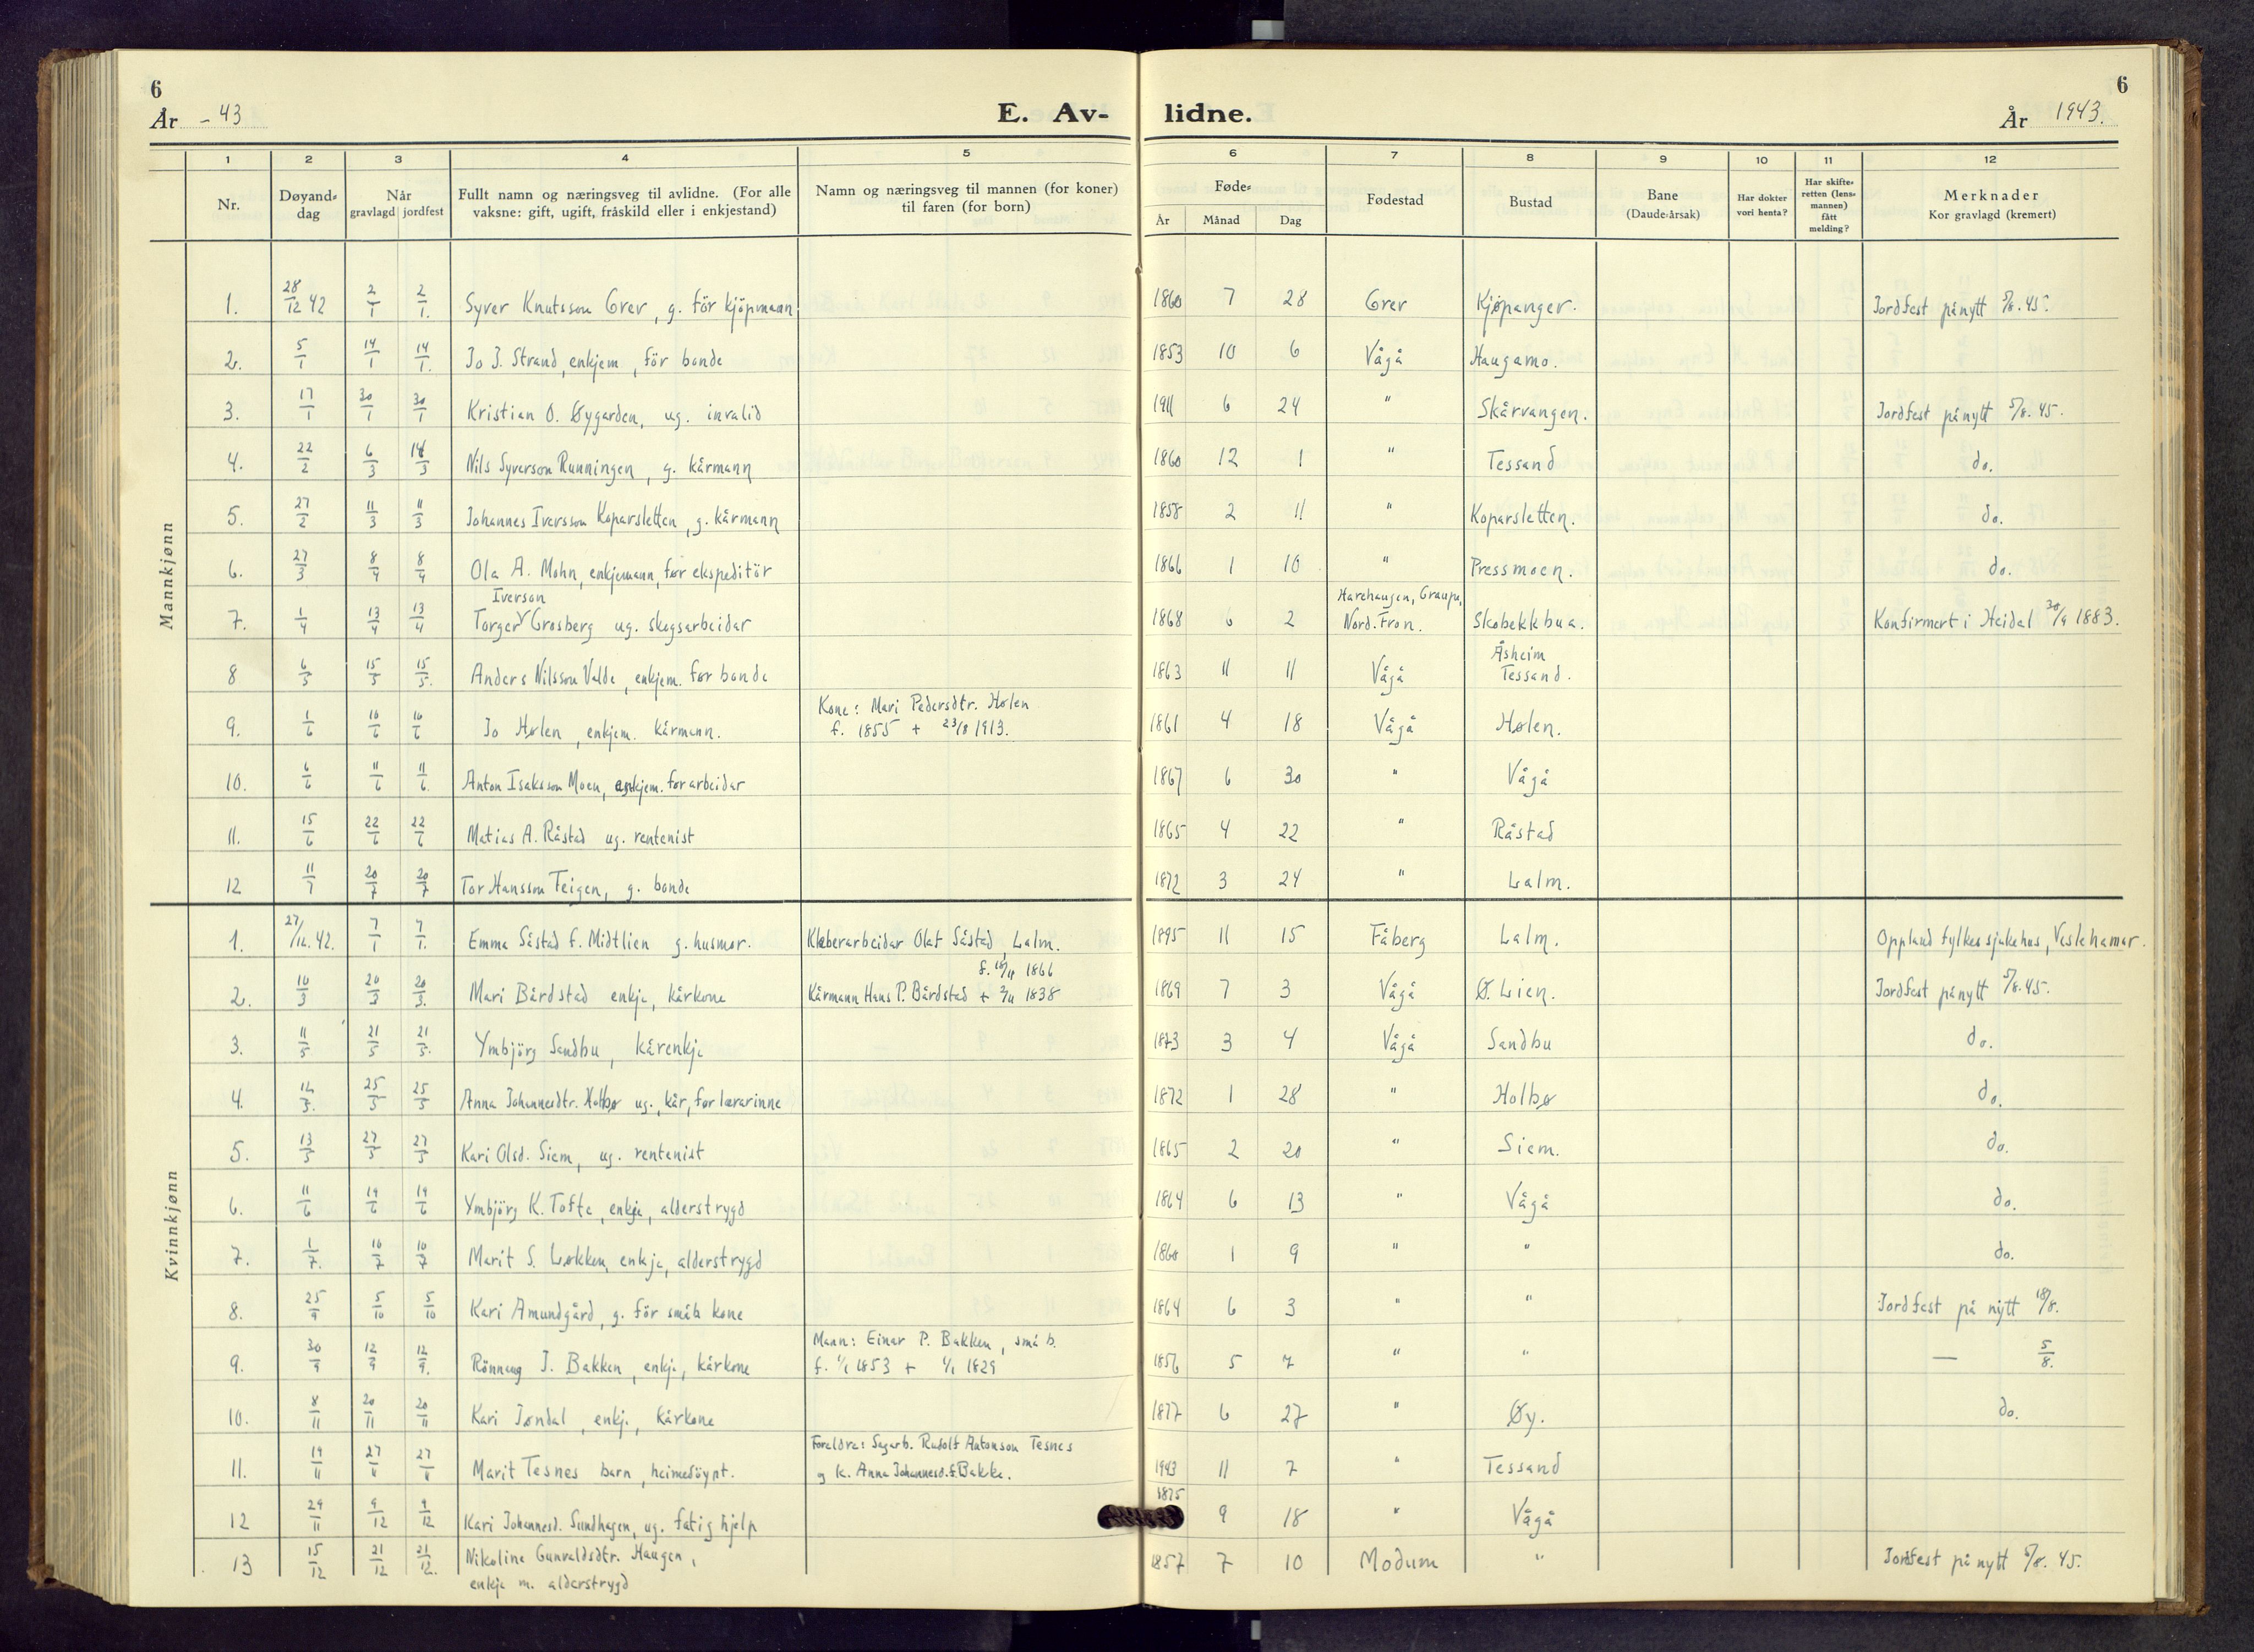 6
År - 43
E. Av-
lidne.
6
År 1943.
1 2 3 4 5 6 7 8 9 10 11 12
Nr. Døyand-dag Når gravlagd jordfest Fullt namn og næringsveg til avlidne. (For alle vaksne: gift, ugift, fråskild eller i enkjestand) Namn og næringsveg til mannen (for koner) til faren (for born) Føde- År Månad Dag Fødestad Bustad Bane (Daude-årsak) Har dokter vori henta? Har skifte-retten (lens-mannen) fått melding? Merknader Kor gravlagd (kremert)
Mannkjønn
1. 28/12 42 2/1 2/1. Syver Knutsson Grev, g. för kjöpmann 1860 7 28 Grev Kjøpanger. Jordfest på nytt 5/8. 45.
2. 5/1 14/1 14/1. Jo J. Strand, enkjem, för bonde 1853 10 6 Vågå Haugamo.
3. 17/1 30/1 30/1 Kristian O. Øygarden, ug. invalid 1911 6 24 " Skårvangen. Jordfest på nytt 5/8. 45.
4. 22/2 6/3 14/3 Nils Syverson Runningen, g. kårmann 1860 12 1 " Tessand do.
5. 27/2 11/3 11/3 Johannes Iversson Koparsletten, g. kårmann 1858 2 11 " Koparsletten. do.
6. 27/3 8/4 8/4 Ola A. Mohn, enkjemann, før ekspeditör 1866 1 10 " Pressmoen. do.
Iverson Harehaugen, Graupe,
7. 1/4 13/4 13/4 Torger Grosberg ug. skogsarbeidar 1868 6 2 Nord. Fron. Skobekkbua. Konfirmert i Heidal 30/9 1883.
Åsheim
8 6/5 15/5 15/5. Anders Nilsson Valde, enkjem. før bonde 1863 11 11 Vågå Tessand.
Kone: Mari Pedersdtr. Hølen
9. 1/6 10/6 10/6 Jo Hølen, enkjem. kårmann. f. 1855 + 23/8 1913. 1861 4 18 Vågå Hølen.
10. 6/6 11/6 11/6 Anton Isaksson Moen, enkjem. før arbeidar 1867 6 30 " Vågå
11. 15/6 22/6 22/6 Matias A. Råstad ug. rentenist 1865 4 22 " Råstad
12 11/7 20/7 20/7 Tor Hansson Teigen, g. bonde 1872 3 24 " Lalm.
Kvinnkjønn
1. 27/12. 42. 7/1 7/1. Emma Såstad f. Midtlien g. husmor. Kleberarbeidar Olaf Såstad, Lalm. 1895 11 15 Fåberg Lalm. Oppland fylkessjukehus, Veslehamar.
1866
2. 10/3 20/3 20/3. Mari Bårdstad enkje, kårkone Kårmann Hans P. Bårdstad + 2/11 1838 1869 7 3 Vågå Ø. Lien. Jordfest på nytt 5/8. 45.
3. 11/5 21/5 21/5. Ymbjörg Sandbu, kårenkje 3 4 Vågå Sandbu do.
4. 12/5. 25/5 25/5 Anna Johannesdtr. Holbø ug., kår, før lærarinne 1872 1 28 " Holbø do.
5. 13/5 27/5 27/5 Kari Olsd. Siem, ug. rentenist 1865 2 20 " Siem. do.
6. 11/6 19/6 19/6 Ymbjörg K. Tofte, enkje, alderstrygd 1864 6 13 " Vågå do.
7. 1/7. 10/7 10/7 Marit S. Løkken, enkje, alderstrygd 1860 1 9 " " do.
8. 25/9 5/10 5/10 Kari Amundgård, g. för småb kone 1864 6 3 " " Jordfest på nytt 18/8.
Mann: Einar P. Bakken, små b.
9. 30/9 12/9 12/9. Rönnaug J. Bakken, enkje, kårkone f. 1/1 1853 + 1/1 1829 1856 5 7 " " — 5/8.
10. 8/11 20/11 20/11 Kari Jøndal, enkj., kårkone 1877 6 27 " Øy. do.
Foreldre: Sagarb. Rudolf Antonson Tesnes
11. 19/11 27/11 27/11 Marit Tesnes barn, heimedöypt. og k. Anna Johannesd. f. Bakke. 1943 11 7 " Tessand
1875
12 29/11 9/12 9/12 Kari Johannesd. Sundhagen, ug. fatighjelp 9 18 " Vågå
13 15/12 21/12 21/12. Nikoline Gunvaldsdtr. Haugen, 1857 7 10 Modum " Jordfest på nytt 5/8. 45.
enkje m. alderstrygd